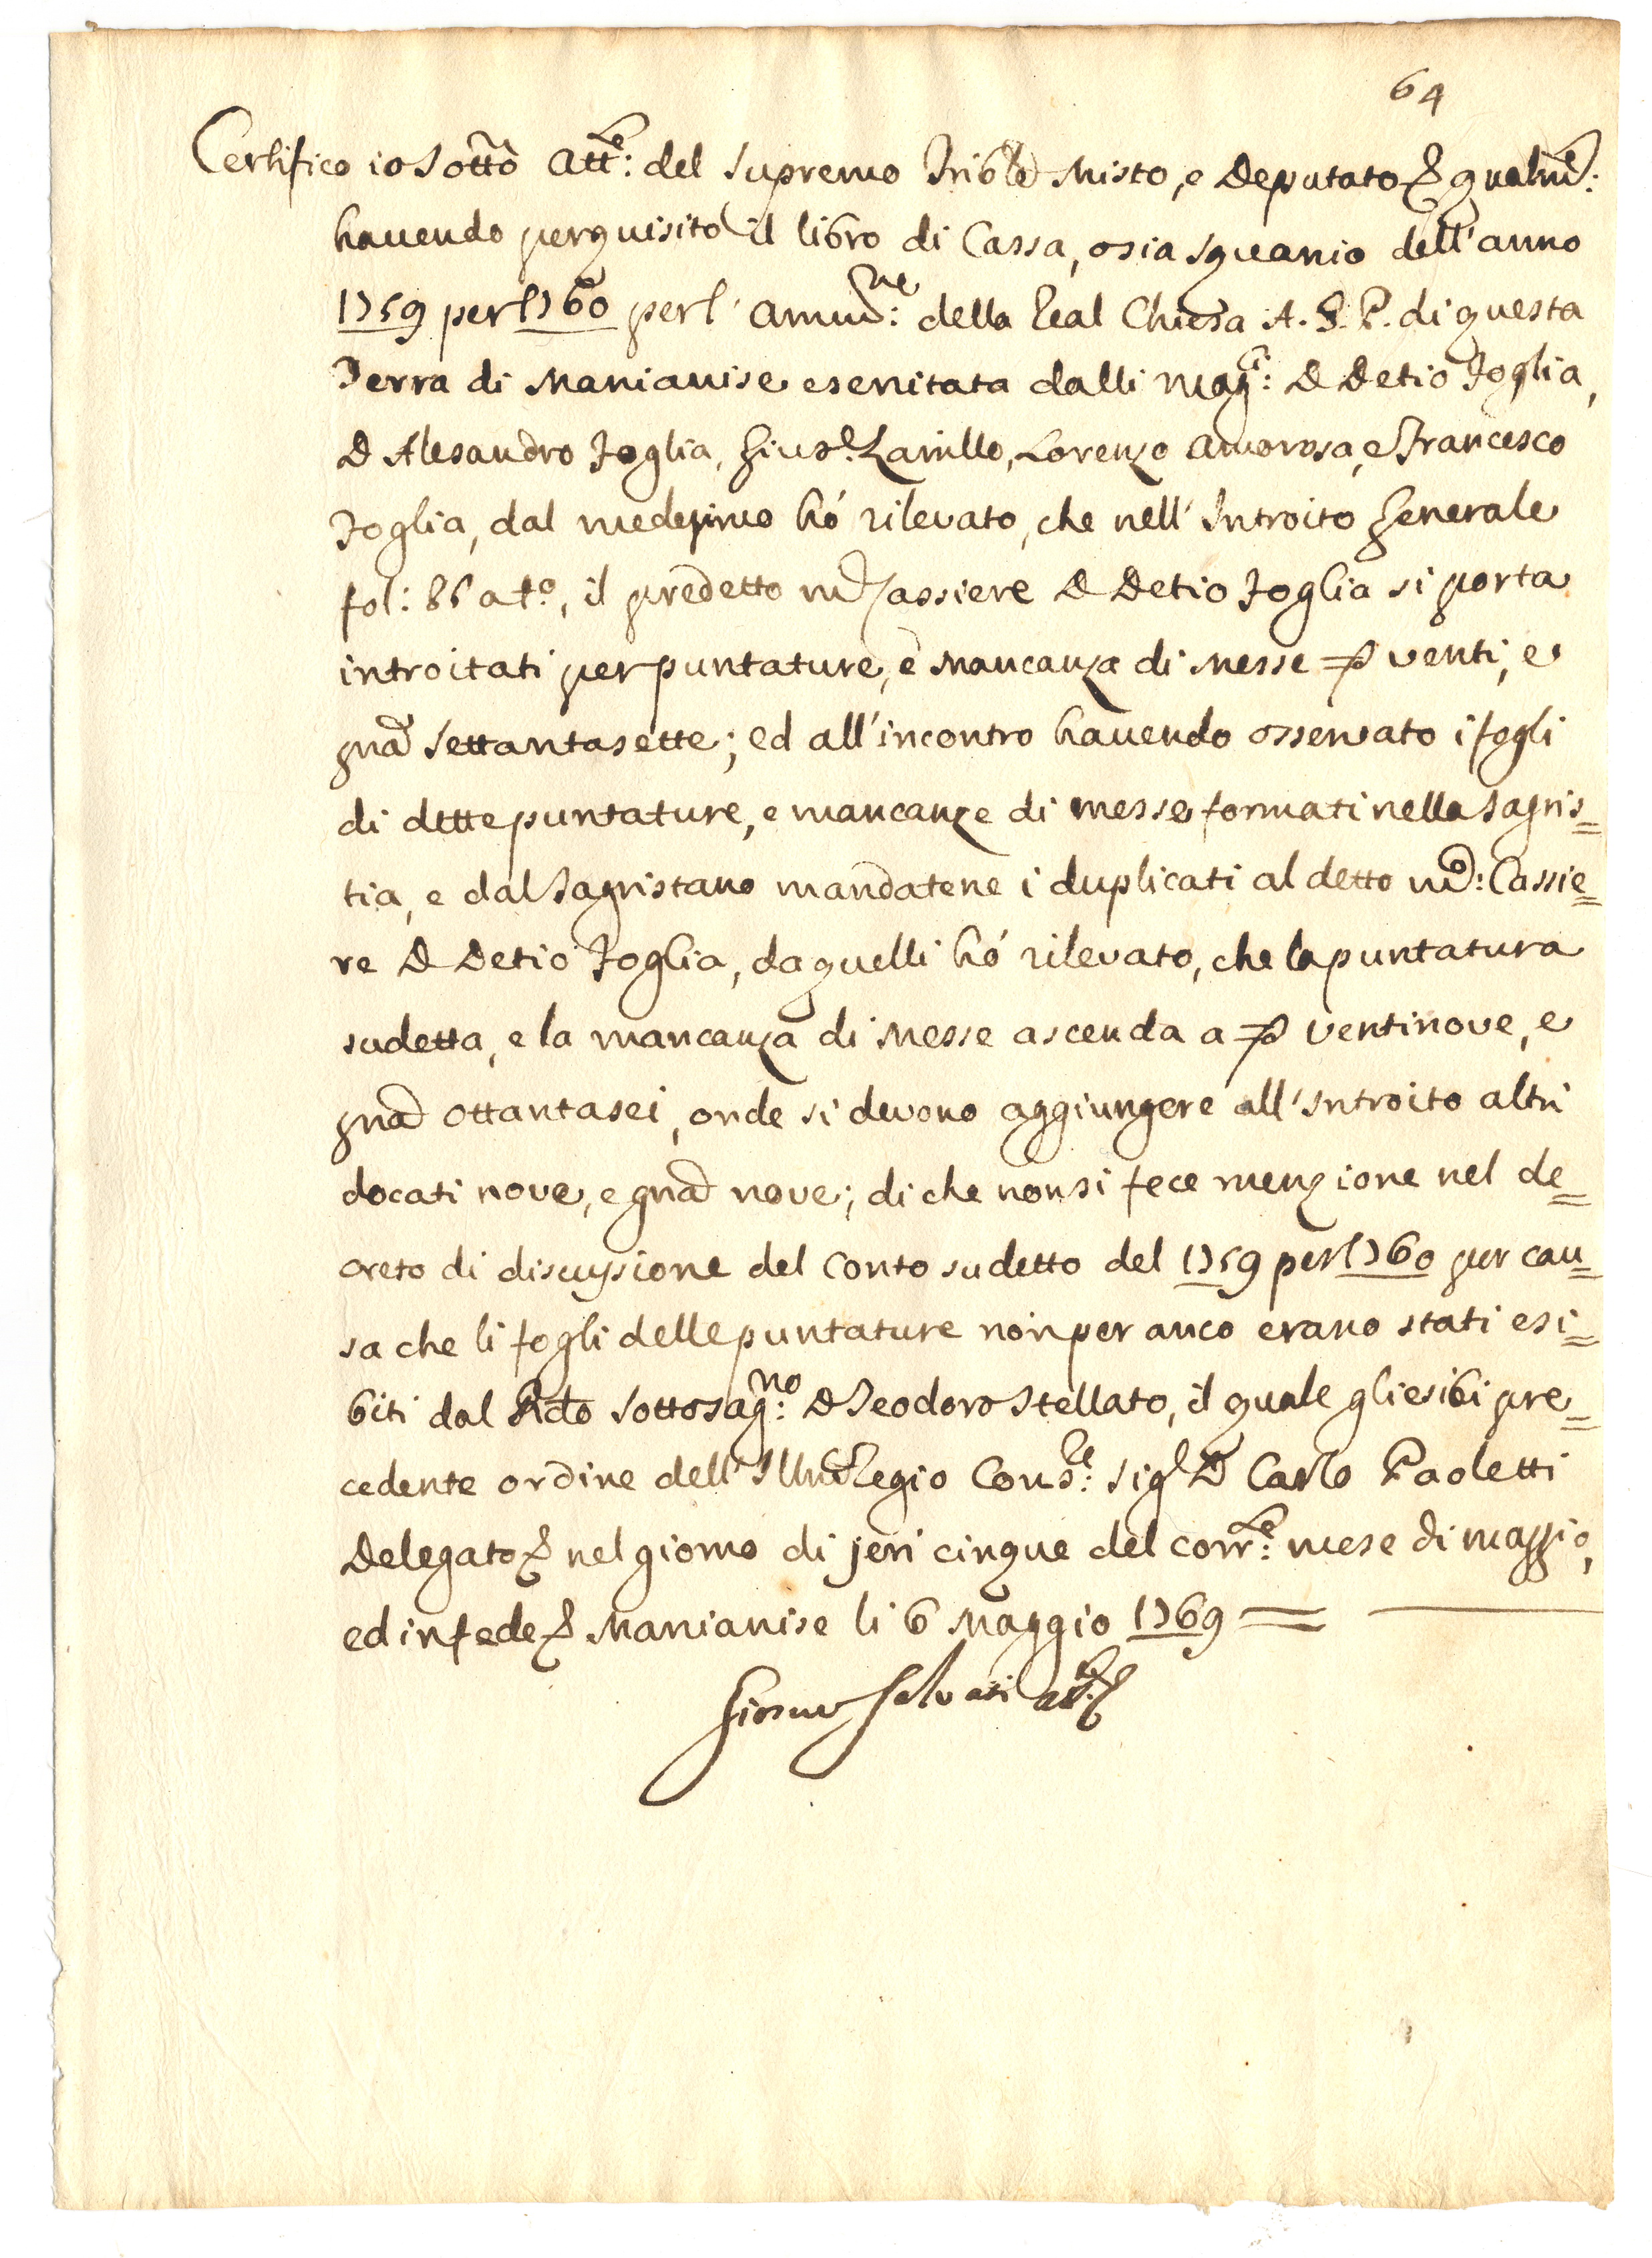 64
Certifico io Sottõ Att.e: del Supremo Trib.le Misto, e Deputato & qualm.e:
havendo perquisito il libro di Cassa, o sia squarcio dell'anno
1759 per l'760 per l' Amm.ne: della Real Chiesa A. G. P. di questa
Terra di Marcianise esercitata dalli mag.ci: D Detio Foglia,
D Alesandro Foglia, Gius.e: Zarrillo, Lorenzo Amorosa, e Francesco
Foglia, dal medesimo hó rilevato, che nell' Introito Generale
fol: 86 a t.o, il predetto m.co Cassiere D Detio Foglia si porta
introitati per puntature, e mancanza di Messe venti, e
gna settantasette; ed all'incontro havendo osservato i fogli
di dette puntature, e mancanze di messe formati nella Sagris=
tia, e dal Sagristano mandatene i duplicati al detto m.co: Cassie=
re D Detio Foglia, da quelli hó rilevato, che la puntatura
sudetta, e la mancanza di Messe ascenda a ventinove, e
gna ottantasei, onde si devono aggiungere all'Introito altri
docati nove, e gna nove; di che non si fece menzione nel de=
creto di discussione del Conto sudetto del 1759 per l'760 per cau=
sa che li fogli delle puntature non per anco erano stati esi=
biti dal Rdo Sottosag.no: D Teodoro Stellato, il quale gli esibi pre=
cedente ordine dell' Illmo Regio Cons.re: Sig.r D Carlo Paoletti
Delegato & nel giorno di jeri cinque del corr.te: mese di maggio,
ed in fede & Marcianise li 6 Maggio 1769 =
Giosue Salvati att.e &